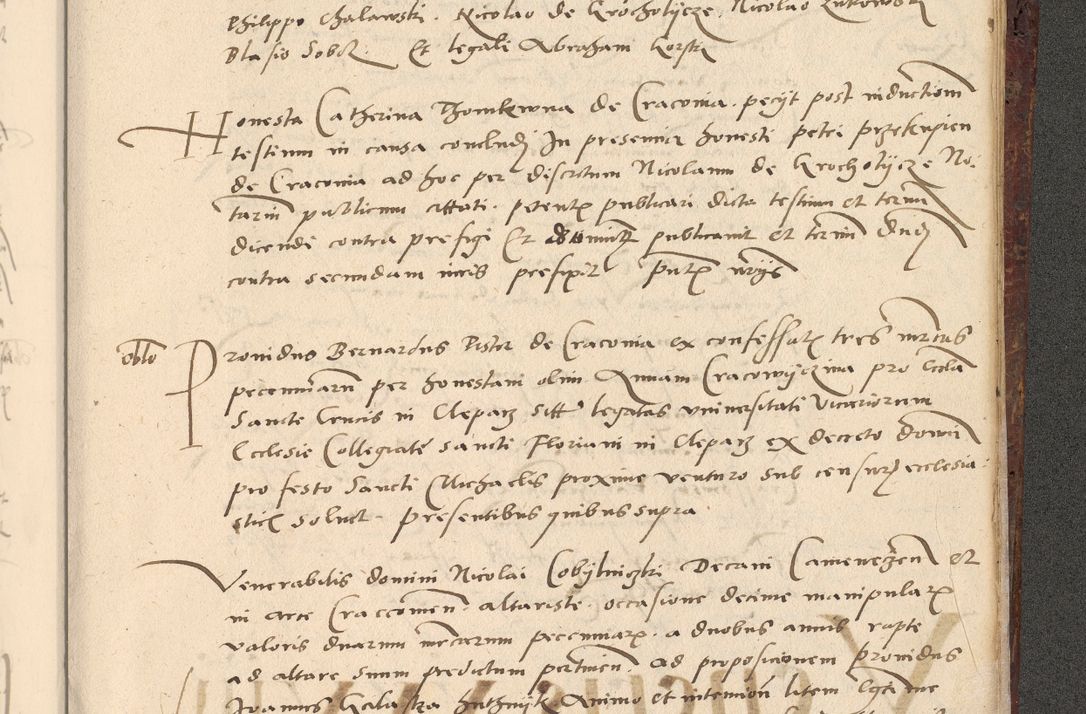 Philippo Chalawski. Nicolao de Krocholycze, Nicolao Zukowski
Blasio Sobol. Et legali Abraham Gorski
Honesta Catherina Thomkowna de Cracovia. petyt post inductiom
testium in causa concludi In presencia honesti petri przekupien
de Cracovia ad hoc per discretum Nicolaum de Krocholycze No¬
tarium publicum citati. petentis publicari dicta testium et termi
dicendi contra prefigi Et dominus publicavit et termi
contra secundam iuris prefixit
oblo
Providus Bernardus Pistor de Cracovia ex confessatis tres mrcas
pecuniarum per honestam olim Annam Cracowyczowna pro Eccla
Sancte Crucis in Clepar sitt legatas universitati vicariorum
Ecclesie Collegiate sancti Floriani in Clepar ex decreto domini
pro festo Sancti Michaelis proxime venturo sub censuris ecclesia¬
sticis solvet. presentibus quibus supra
Venerabilis domini Nicolai Cobylnyczki Decani Camenecen et
in arce Craccovien. altariste. occasione decime manipularis
valoris duarum mrcarum pecuniaris. a duobus annis rapte
ad altare suum predictum pertinen. ad proposicionem providus
Joannes Galaszka animo et intentione litem